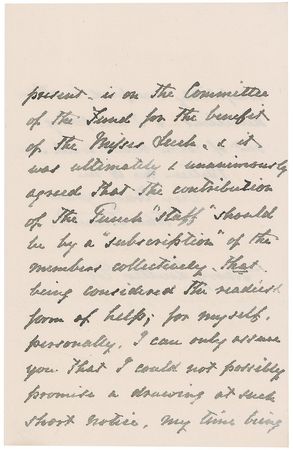 present - is on the Committee
of the Fund for the benefit
of the Misses Leech, & it
was ultimately & unanimously
agreed that the contribution
of the Punch "staff" should
be by a "subscription" of the
members collectively, that
being considered the readiest
form of help; for myself,
personally, I can only assure
you that I could not possibly
promise a drawing at such
short notice, my time being